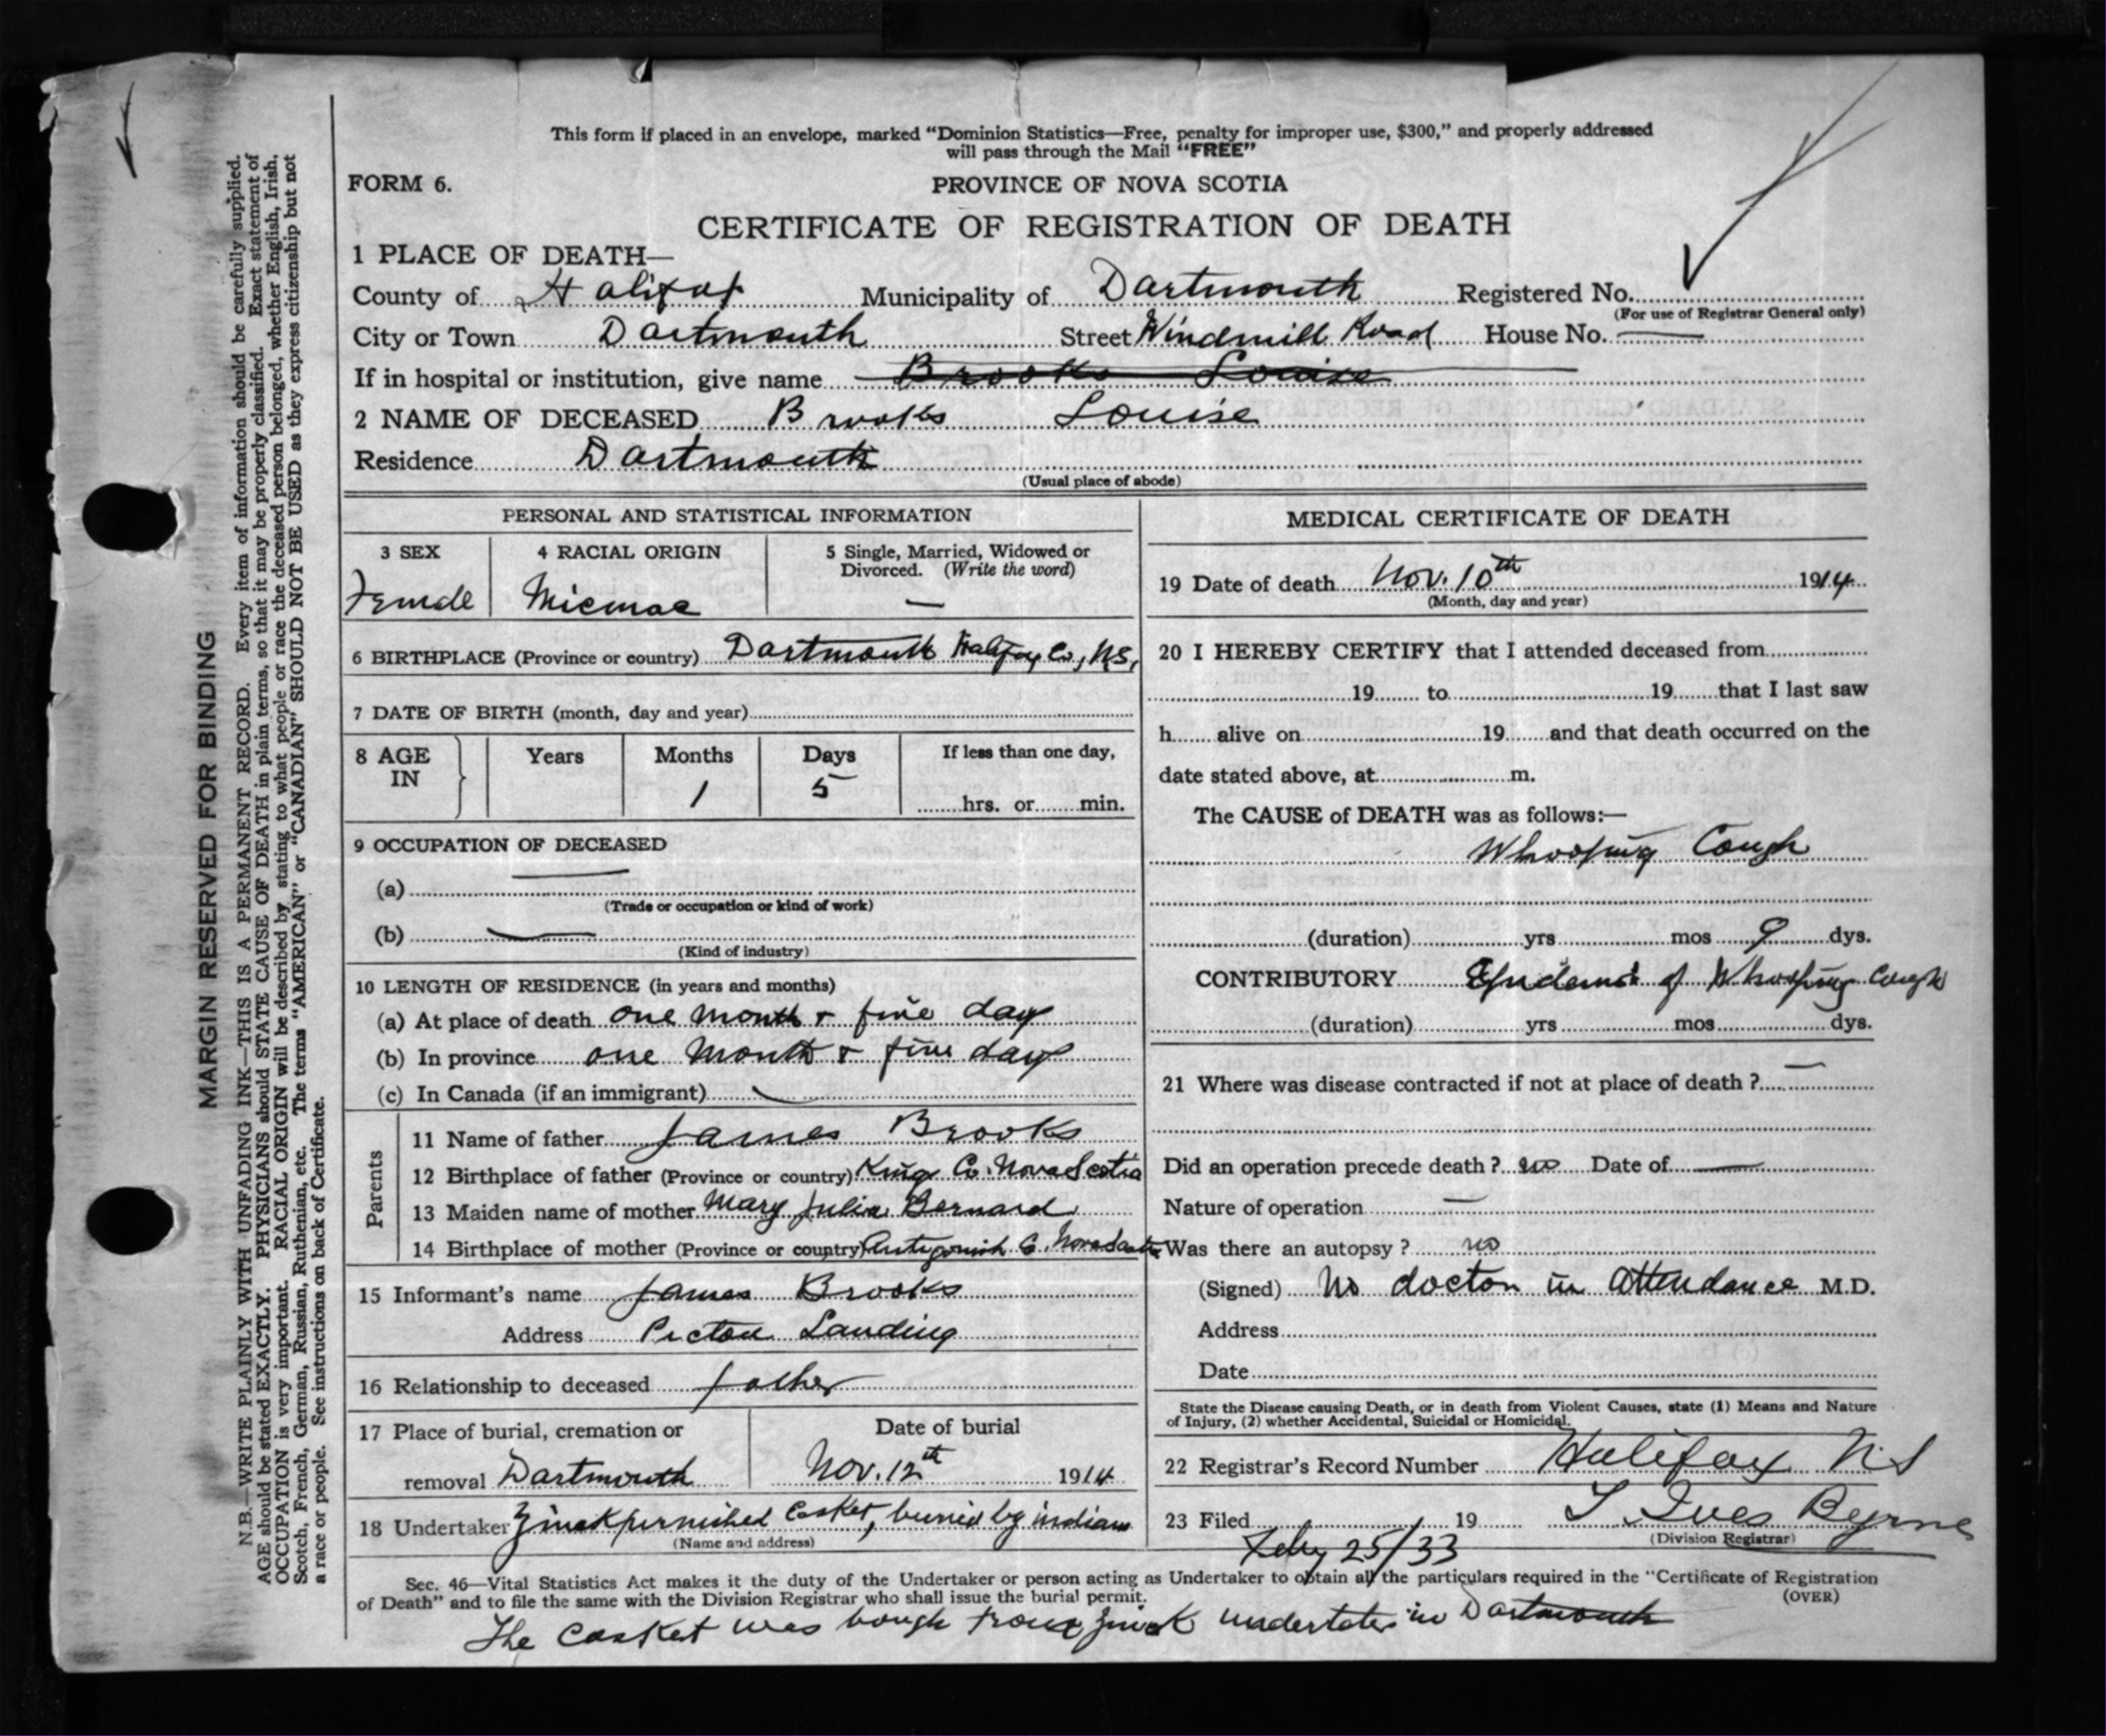 This form if placed in an envelope, marked “Dominion Statistics—Free, penalty for improper use, $300,” and properly addressed
will pass through the Mail “FREE”
FORM 6.
PROVINCE OF NOVA SCOTIA
CERTIFICATE OF REGISTRATION OF DEATH
1 PLACE OF DEATH—
County of Halifax Municipality of Dartmouth Registered No.
(For use of Registrar General only)
City or Town Dartmouth Street Windmill Road House No. —
If in hospital or institution, give name Brooks Louise
2 NAME OF DECEASED Brooks Louise
Residence Dartmouth
(Usual place of abode)
PERSONAL AND STATISTICAL INFORMATION
3 SEX
Female
4 RACIAL ORIGIN
Micmac
5 Single, Married, Widowed or
Divorced. (Write the word)
—
6 BIRTHPLACE (Province or country) Dartmouth Halifax Co., N.S.
7 DATE OF BIRTH (month, day and year)
8 AGE
IN
Years
Months
1
Days
5
If less than one day,
hrs. or min.
9 OCCUPATION OF DECEASED
(a) —
(Trade or occupation or kind of work)
(b) —
(Kind of industry)
10 LENGTH OF RESIDENCE (in years and months)
(a) At place of death one month + five day
(b) In province one month + five day
(c) In Canada (if an immigrant) —
Parents
11 Name of father James Brooks
12 Birthplace of father (Province or country) King Co. Nova Scotia
13 Maiden name of mother Mary Julia Bernard
14 Birthplace of mother (Province or country) Antigonish Co. Nova Scotia
15 Informant’s name James Brooks
Address Pictou Landing
16 Relationship to deceased father
17 Place of burial, cremation or
removal Dartmouth
Date of burial
Nov. 12th 1914
18 Undertaker furnished casket, buried by indians
(Name and address)
MEDICAL CERTIFICATE OF DEATH
19 Date of death Nov. 10th 1914
(Month, day and year)
20 I HEREBY CERTIFY that I attended deceased from
19 to 19 that I last saw
h alive on 19 and that death occurred on the
date stated above, at m.
The CAUSE of DEATH was as follows:—
Whooping Cough
(duration) yrs mos 9 dys.
CONTRIBUTORY Epidemic of Whooping Cough
(duration) yrs mos dys.
21 Where was disease contracted if not at place of death ? —
Did an operation precede death ? no Date of —
Nature of operation —
Was there an autopsy ? no
(Signed) No doctor in attendance M.D.
Address
Date
State the Disease causing Death, or in death from Violent Causes, state (1) Means and Nature
of Injury, (2) whether Accidental, Suicidal or Homicidal.
22 Registrar’s Record Number Halifax NS
23 Filed 19 Ives Byrne
(Division Registrar)
Feby 25/33
Sec. 46—Vital Statistics Act makes it the duty of the Undertaker or person acting as Undertaker to obtain all the particulars required in the “Certificate of Registration
of Death” and to file the same with the Division Registrar who shall issue the burial permit.
(OVER)
The casket was bough from undertaker in Dartmouth
MARGIN RESERVED FOR BINDING
N.B.—WRITE PLAINLY WITH UNFADING INK—THIS IS A PERMANENT RECORD. Every item of information should be carefully supplied.
AGE should be stated EXACTLY. PHYSICIANS should STATE CAUSE OF DEATH in plain terms, so that it may be properly classified. Exact statement of
OCCUPATION is very important. RACIAL ORIGIN will be described by stating to what people or race the deceased person belonged, whether English, Irish,
Scotch, French, German, Russian, Ruthenian, etc. The terms “AMERICAN” or “CANADIAN” SHOULD NOT BE USED as they express citizenship but not
a race or people. See instructions on back of Certificate.